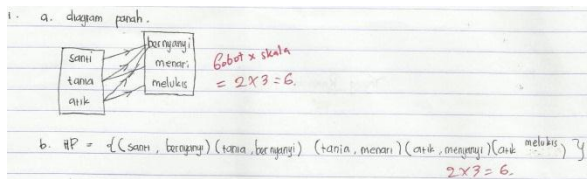 1. a. diagram panah.
santi
tania
atik
bernyanyi
menari
melukis
Bobot x skala
= 2x3=6.
b. HP = {(santi, bernyanyi)(tania, bernyanyi) (tania, menari)(atik, menyanyi)(atik melukis)}
2x3=6.